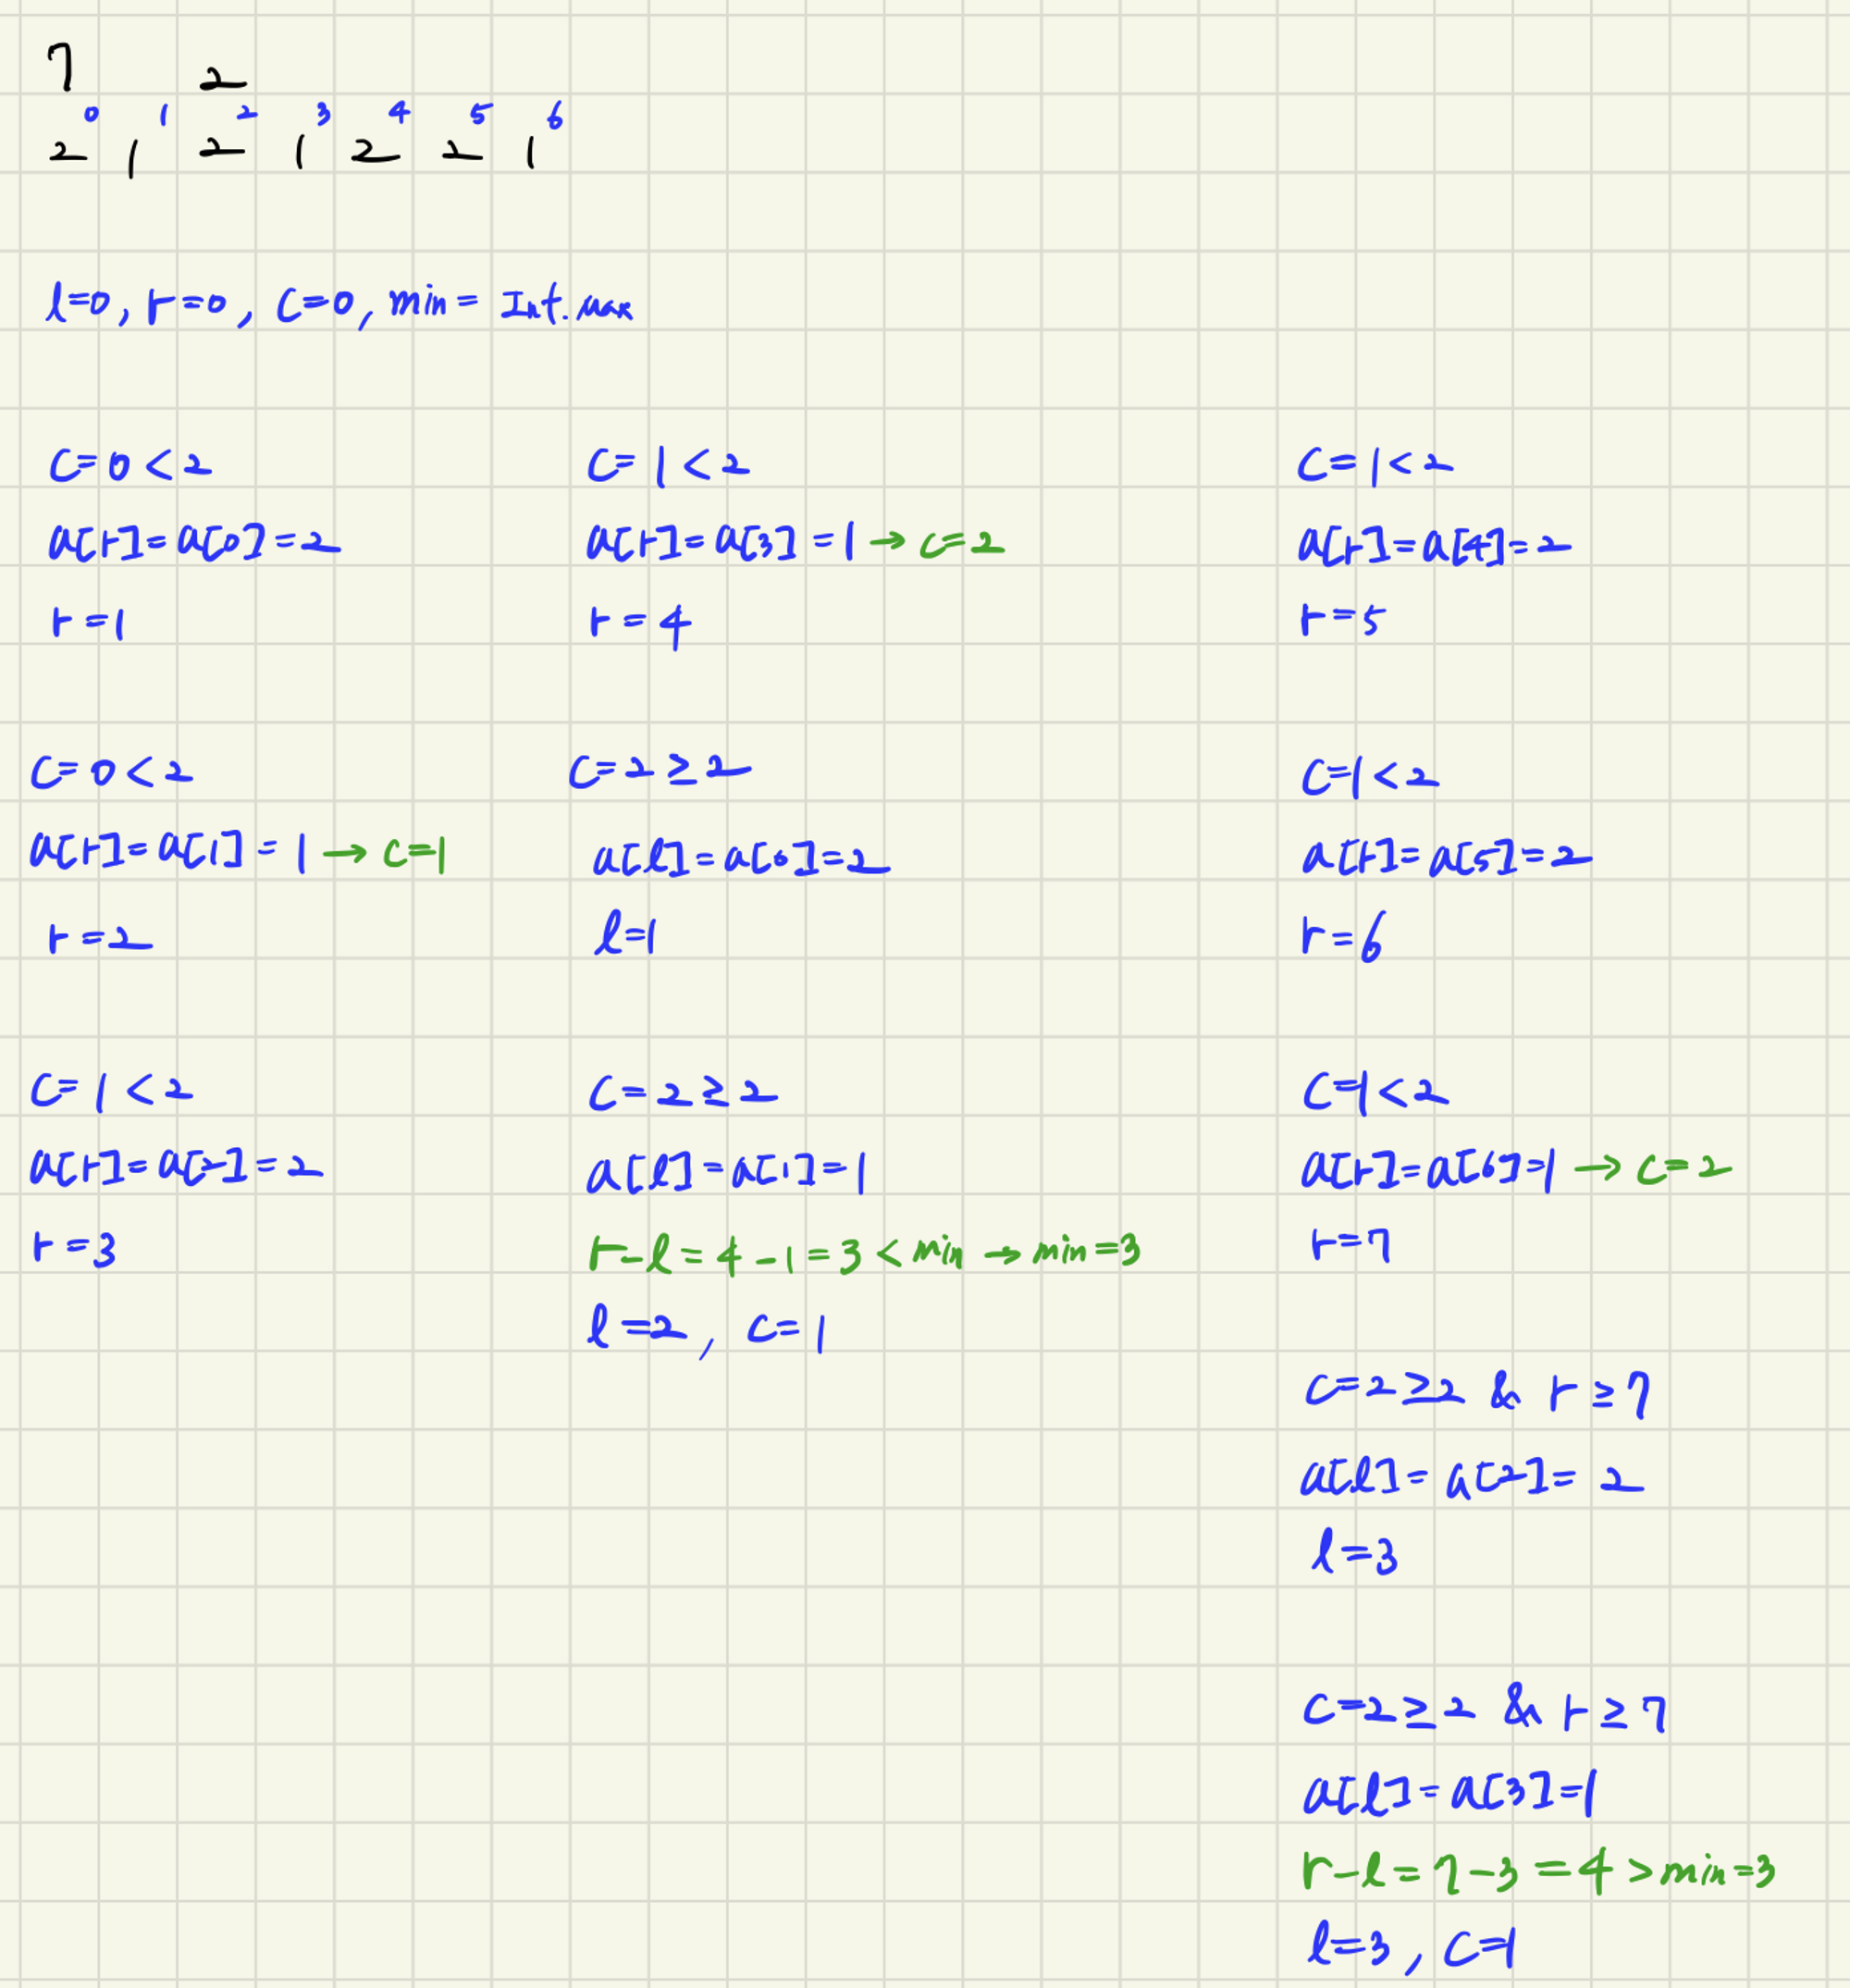 7 2
0 1 2 3 4 5 6
2 1 2 1 2 2 1
l=0, r=0, c=0, min = Int.max
c=0<2
a[r]=a[0]=2
r=1
c=0<2
a[r]=a[1]=1→c=1
r=2
c=1<2
a[r]=a[2]=2
r=3
c=1<2
a[r]=a[3]=1→c=2
r=4
c=2≥2
a[l]=a[0]=2
l=1
c=2≥2
a[l]=a[1]=1
r-l=4-1=3<min→min=3
l=2, c=1
c=1<2
a[r]=a[4]=2
r=5
c=1<2
a[r]=a[5]=2
r=6
c=1<2
a[r]=a[6]=1→c=2
r=7
c=2≥2 & r≥7
a[l]=a[2]=2
l=3
c=2≥2 & r≥7
a[l]=a[3]=1
r-l=7-3=4>min=3
l=3, c=1